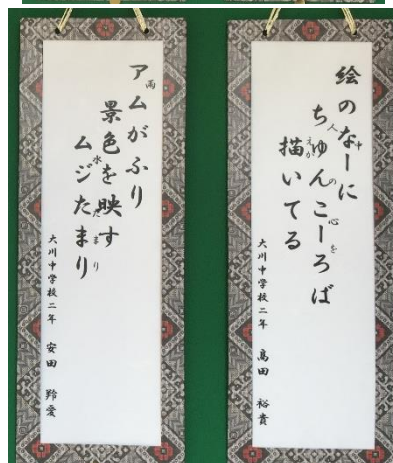 絵のなーに
中
ちゅんこーろば
人の心を
描いてる
えが
大川中学校二年 高田 裕貴
アムがふり
雨
景色を映す
ムジたまり
大川中学校二年 安田